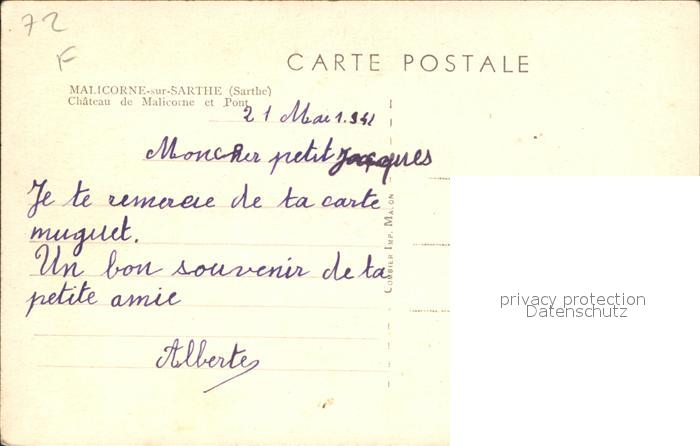 72
F
CARTE POSTALE
MALICORNE-sur-SARTHE (Sarthe)
Château de Malicorne et Pont
21 Mai 1.942
Mon cher petit Jacques
Je te remercie de ta carte
muguet.
Un bon souvenir de ta
petite amie
Alberte
COMBIER IMP. MACON
privacy protection
Datenschutz